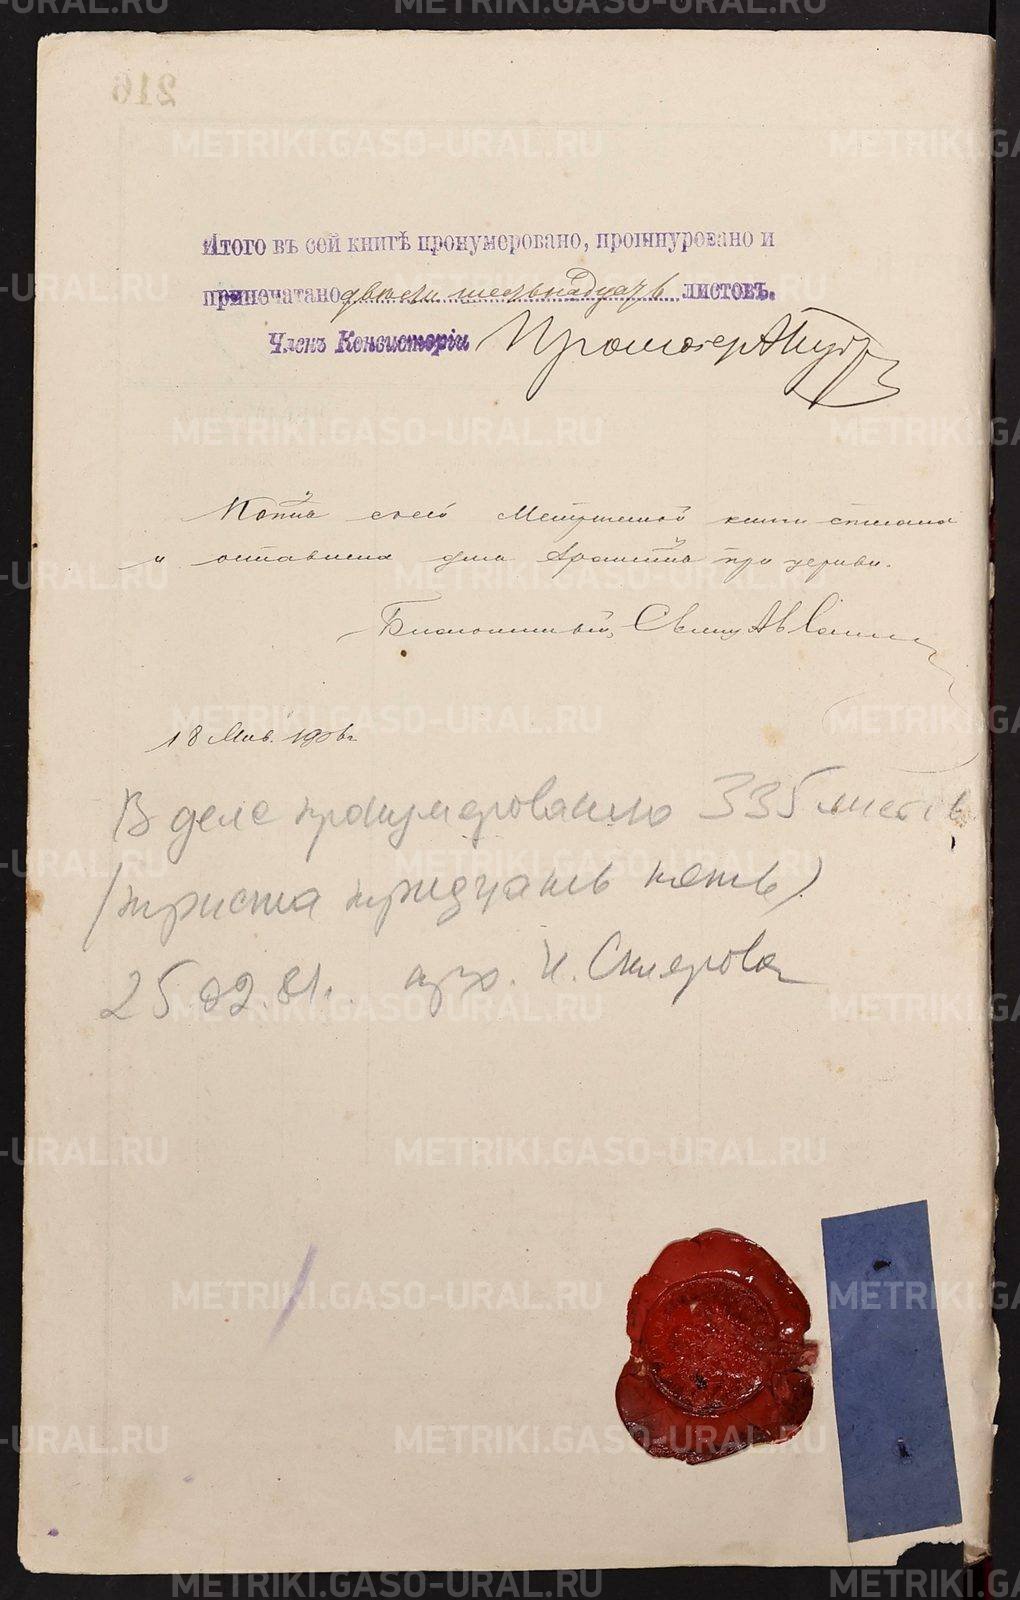 216
Итого въ сей книгѣ пронумеровано, прошнуровано и
припечатано двѣсти шестьнадцать листовъ.
Членъ Консисторіи Протоіер
Копія сей Метрической книги списана
и оставлена для храненія при церкви.
Благочинный, Свящ
18 Янв. 1906 г.
В деле пронумеровано 335 листов
(триста тридцать пять)
25.02.81г. арх. Н. Смелрова
METRIKI.GASO-URAL.RU